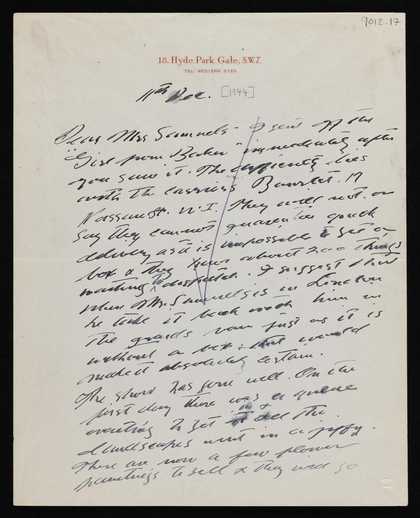 9012.17
18, Hyde Park Gate, S.W.7.
TEL. WESTERN
11th Dec. [1944]
Dear Mrs Samuels - I sent off the
"Girl from Baku" immediately after
you saw it. The difficulty lies
with the carriers Bourlet. 17
Nassau St. W.I. They will not or
say they cannot guarantee quick
delivery as it is impossible to get a
box & they have about 200 things
waiting to despatch. I suggest that
when Mr. Samuels is in London
he take it back with him in
the van just as it is
without a box: that would
make it absolutely certain.
The show has gone well. On the
first day there was a queue
waiting to get in & all the
landscapes went in a jiffy.
There are now a few flower
paintings to sell & they will go